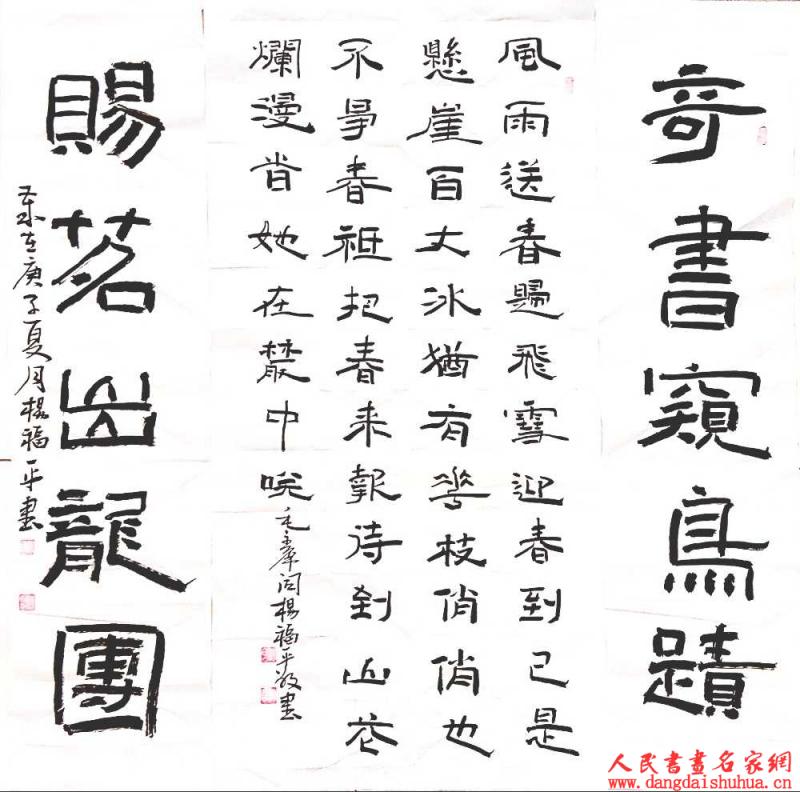 奇書窺鳥蹟
風雨送春歸飛雪迎春到已是
懸崖百丈冰猶有花枝俏俏也
不爭春祗把春来報待到山花
爛漫旹她在叢中咲
毛主席词楊福平敬書
賜茗出龍團
歲在庚子夏月楊福平書
人民書畫名家網
www.dangdaishuhua.cn